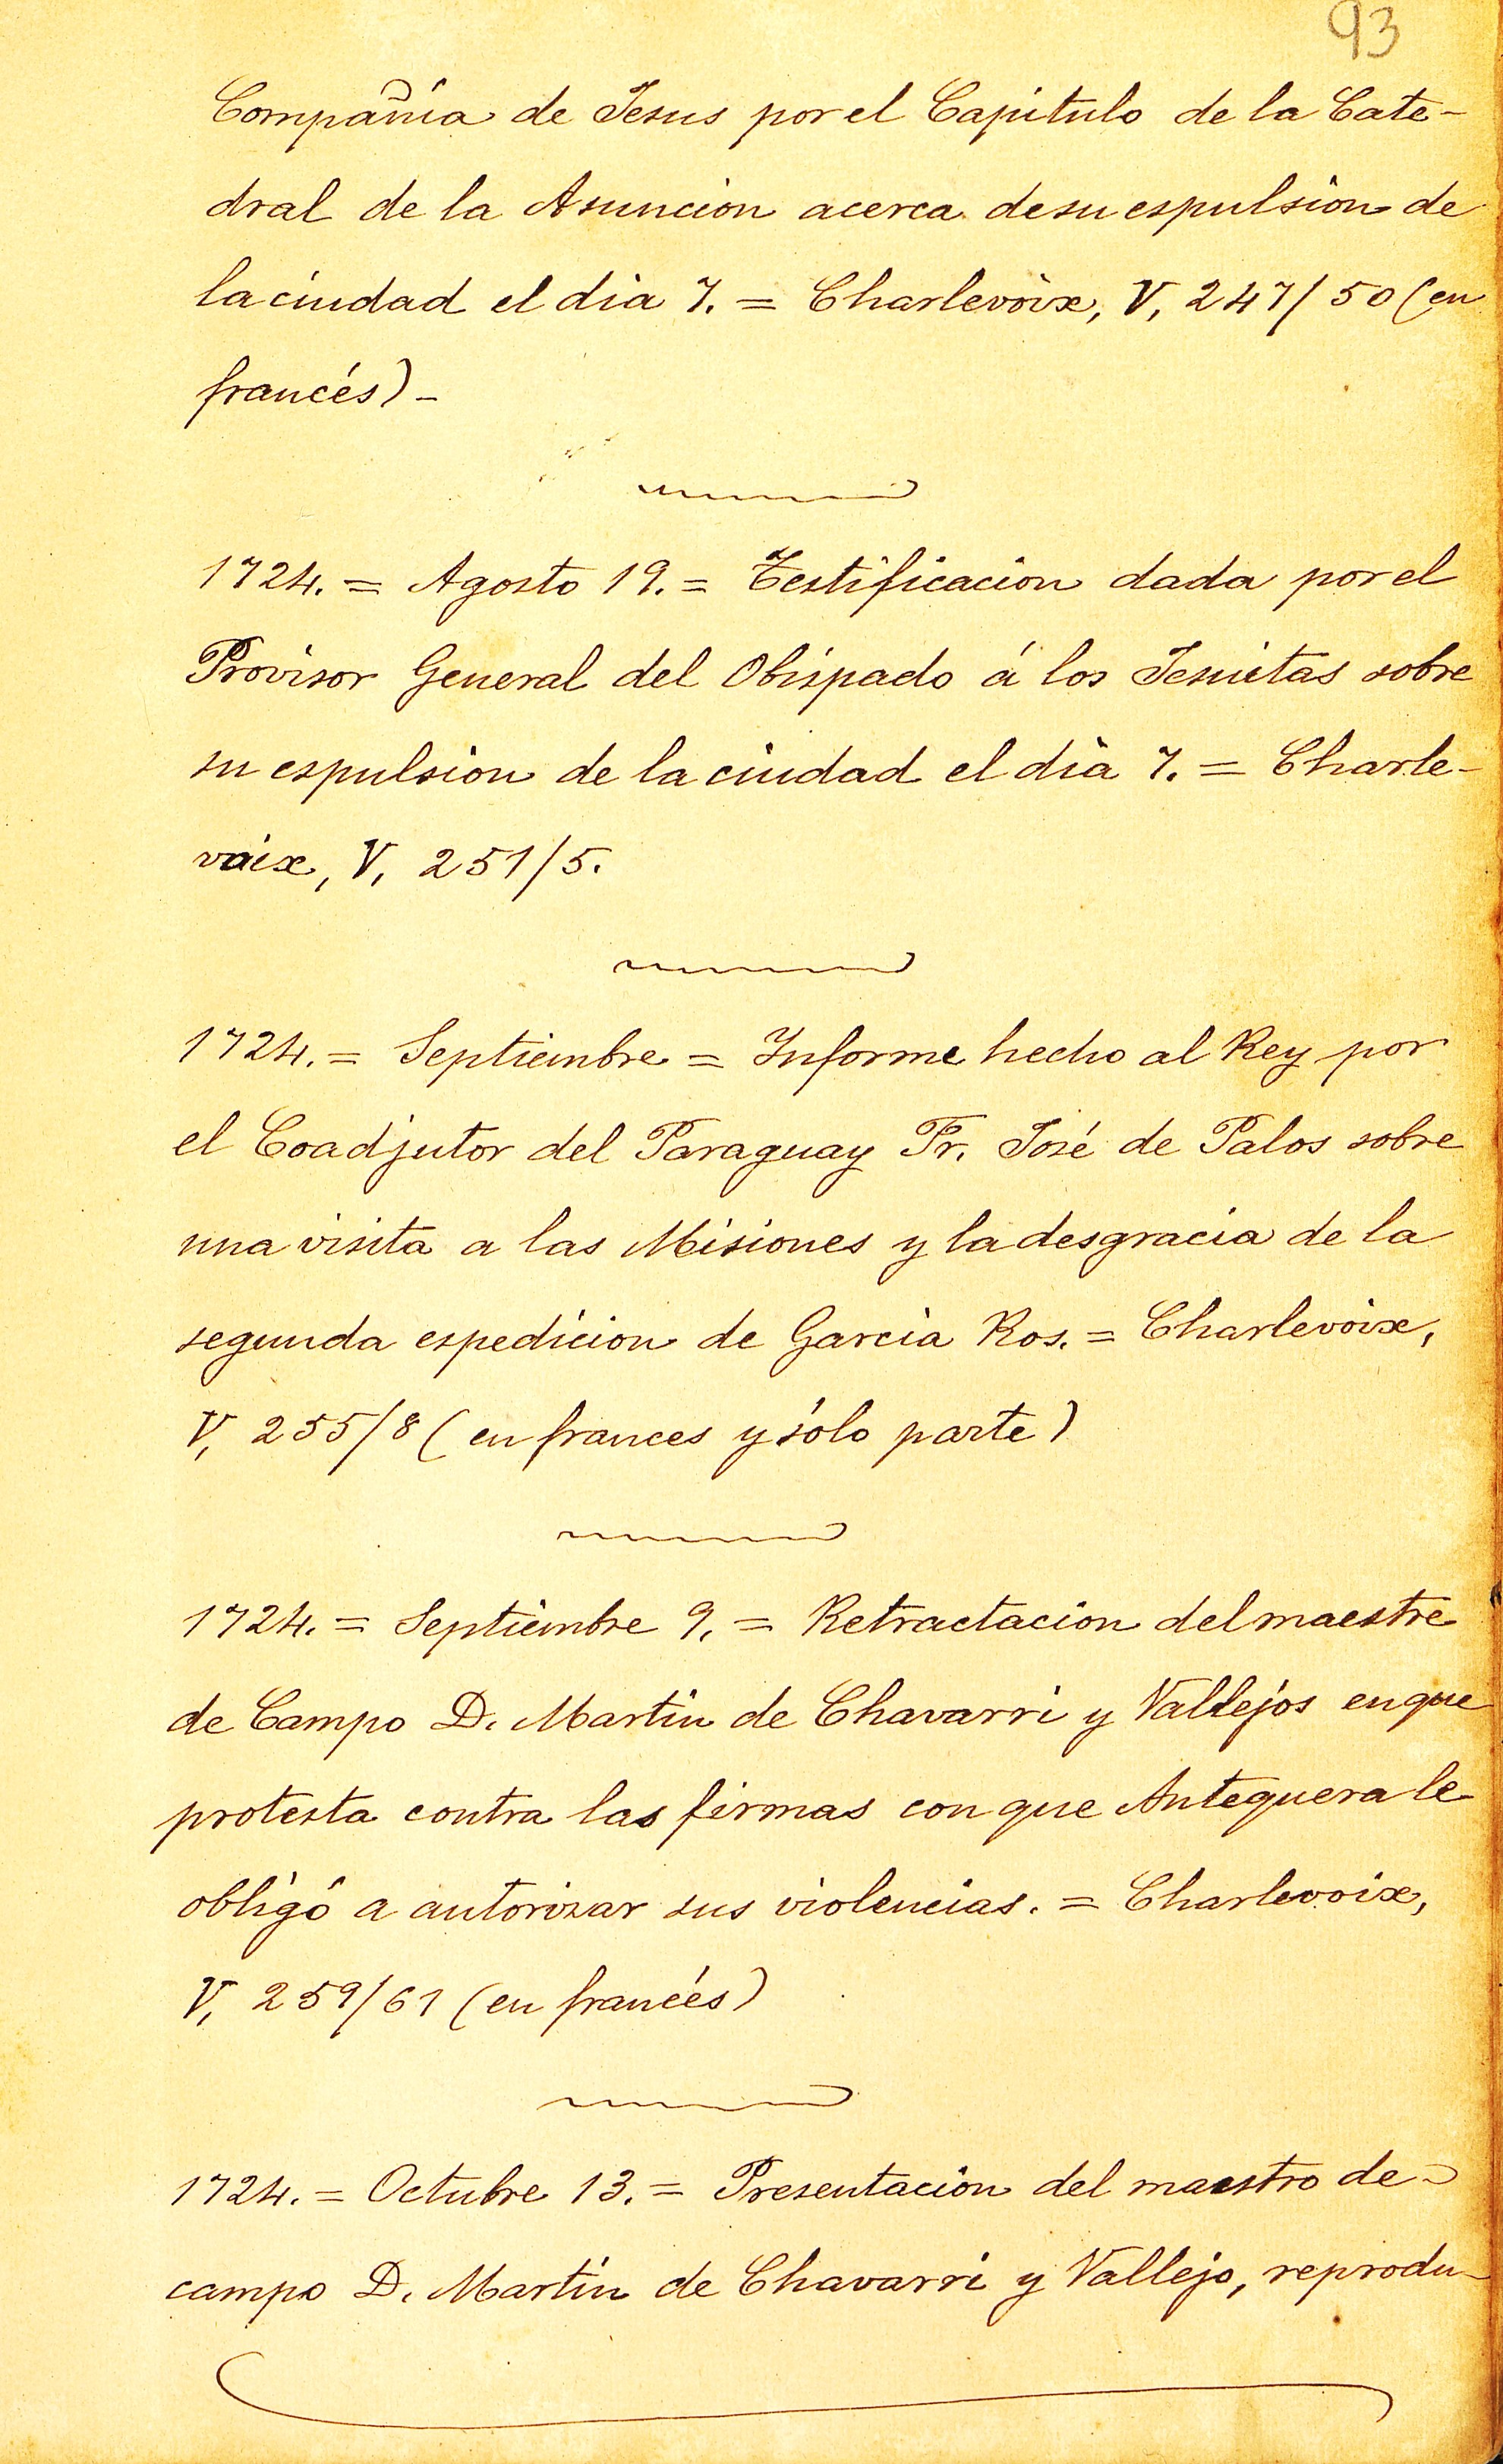 93
Compañía de Jesus por el Capítulo de la Cate-
dral de la Asuncion acerca de su espulsion de
la ciudad el dia 7. = Charlevoix, V, 247/50 (en
francés) -
1724. = Agosto 19. = Testificacion dada por el
Provisor General del Obispado á los Jesuitas sobre
su espulsion de la ciudad el dia 7. = Charle-
voix, V, 251/5.
1724. = Septiembre = Informe hecho al Rey por
el Coadjutor del Paraguay Fr. José de Palos sobre
una visita a las Misiones y la desgracia de la
segunda espedicion de Garcia Ros. = Charlevoix,
V, 255/8 (en frances y sólo parte)
1724. = Septiembre 9. = Retractacion del maestre
de Campo D. Martin de Chavarri y Vallejos en que
protesta contra las firmas con que Antequera le
obligó a autorizar sus violencias. = Charlevoix,
V, 259/61 (en francés)
1724. = Octubre 13. = Presentación del maestro de
campo D. Martin de Chavarri y Vallejo, reprodu-